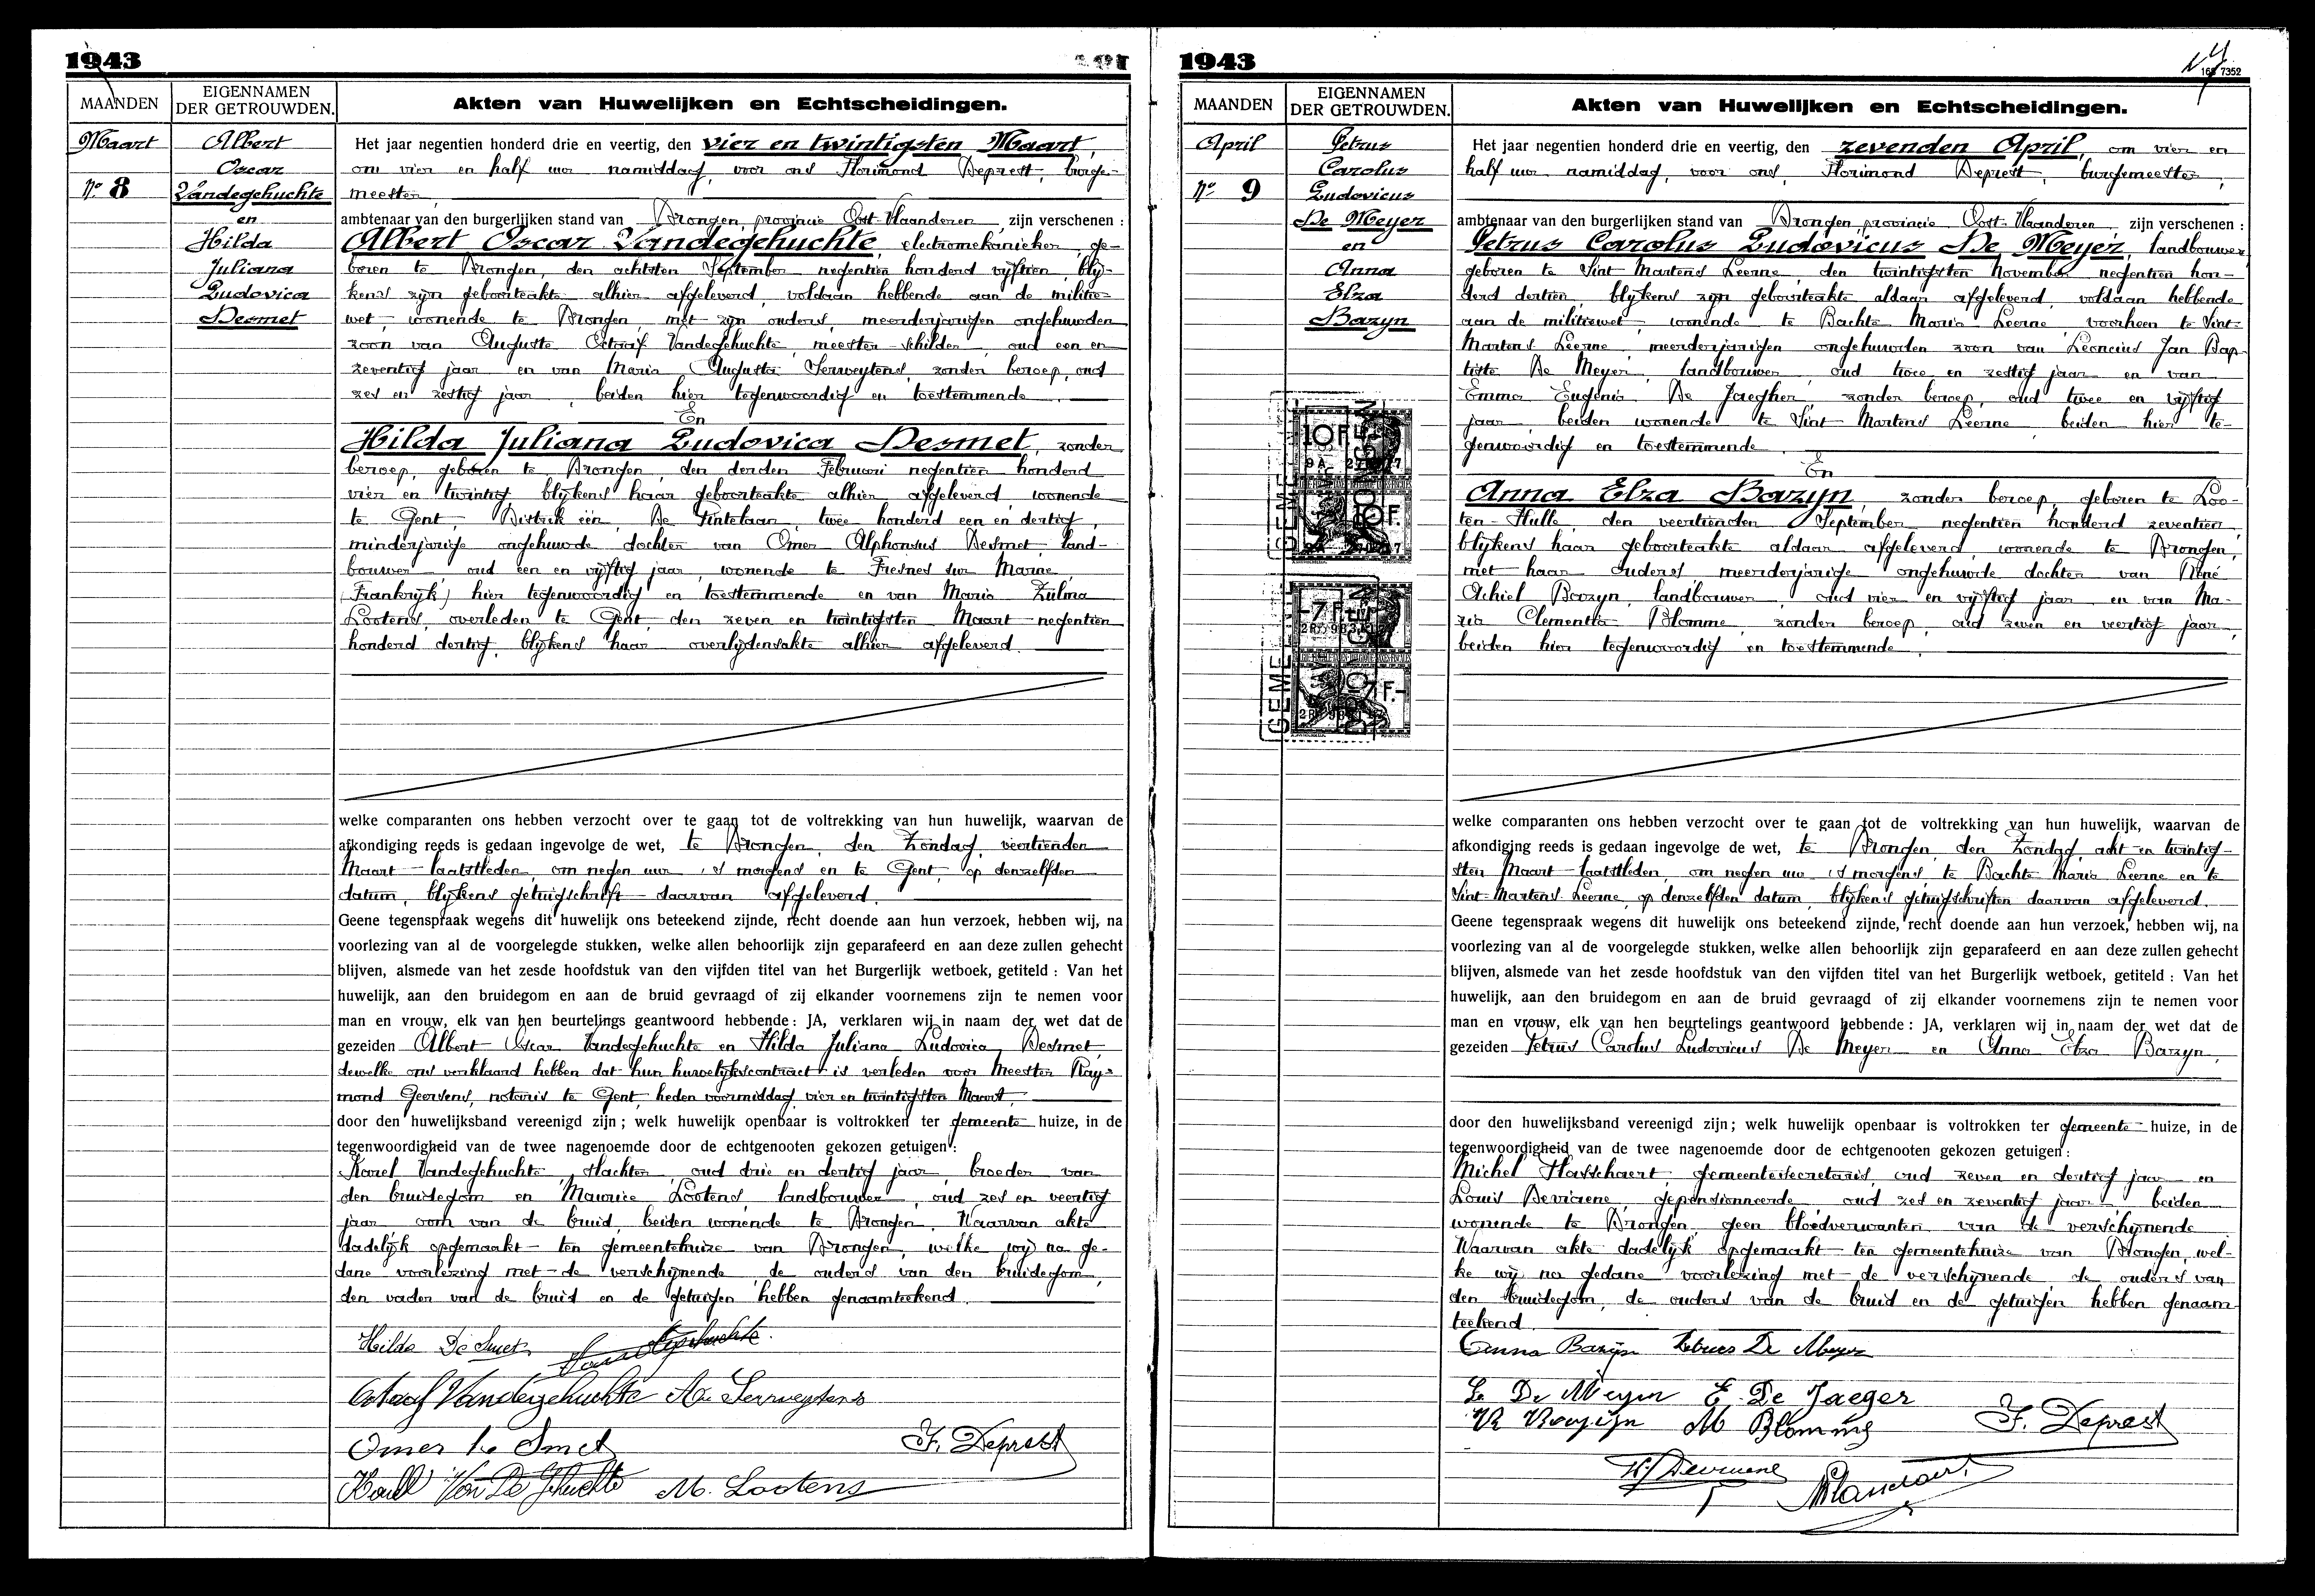 1943
MAANDEN
EIGENNAMEN
DER GETROUWDEN.
Akten van Huwelijken en Echtscheidingen.
Maart
No 8
Albert
Oscar
Vandegehuchte
en
Hilda
Juliana
Ludovica
Desmet
Het jaar negentien honderd drie en veertig, den vier en twintigsten Maart,
om vier en half uur namiddag, voor ons Florimond Deprest, burge-
meester,
ambtenaar van den burgerlijken stand van Drongen, provincie Oost-Vlaanderen, zijn verschenen :
Albert Oscar Vandegehuchte, electromekanieker, ge-
boren te Drongen, den achtsten September negentien honderd vijftien, blij-
kens zijn geboorteakte alhier afgeleverd, voldaan hebbende aan de militie-
wet, wonende te Drongen, met zijn ouders, meerderjarigen ongehuwden
zoon van Auguste Octaaf Vandegehuchte, meester-schilder, oud een en
zeventig jaar en van Maria Augusta Serweytens, zonder beroep, oud
zes en zestig jaar, beiden hier tegenwoordig en toestemmende.
En
Hilda Juliana Ludovica Desmet, zonder
beroep, geboren te Drongen, den derden Februari negentien honderd
vier en twintig blijkens haar geboorteakte alhier afgeleverd, wonende
te Gent, Distrik één, De Pintelaan, twee honderd een en dertig,
minderjarige ongehuwde dochter van Omer Alphonsus Desmet, land-
bouwer, oud een en vijftig jaar, wonende te Fresnes sur Marne
(Frankrijk) hier tegenwoordig en toestemmende en van Maria Zulma
Lootens, overleden te Gent, den zeven en twintigsten Maart negentien
honderd dertig, blijkens haar overlijdensakte alhier afgeleverd.
welke comparanten ons hebben verzocht over te gaan tot de voltrekking van hun huwelijk, waarvan de
afkondiging reeds is gedaan ingevolge de wet, te Drongen, den Zondag, veertienden
Maart laatstleden, om negen uur 's morgens en te Gent, op denzelfden
datum, blijkens getuigschrift daarvan afgeleverd.
Geene tegenspraak wegens dit huwelijk ons beteekend zijnde, recht doende aan hun verzoek, hebben wij, na
voorlezing van al de voorgelegde stukken, welke allen behoorlijk zijn geparafeerd en aan deze zullen gehecht
blijven, alsmede van het zesde hoofdstuk van den vijfden titel van het Burgerlijk wetboek, getiteld : Van het
huwelijk, aan den bruidegom en aan de bruid gevraagd of zij elkander voornemens zijn te nemen voor
man en vrouw, elk van hen beurtelings geantwoord hebbende : JA, verklaren wij in naam der wet dat de
gezeiden Albert Oscar Vandegehuchte en Hilda Juliana Ludovica Desmet,
dewelke ons verklaard hebben dat hun huwelijkscontract is verleden voor Meester Ray-
mond Goossens, notaris te Gent, heden voormiddag vier en twintigsten Maart,
door den huwelijksband vereenigd zijn ; welk huwelijk openbaar is voltrokken ter gemeente huize, in de
tegenwoordigheid van de twee nagenoemde door de echtgenooten gekozen getuigen :
Karel Vandegehuchte, slachter, oud drie en dertig jaar, broeder van
den bruidegom en Maurice Lootens, landbouwer, oud zes en veertig
jaar, oom van de bruid, beiden wonende te Drongen. Waarvan akte
dadelijk opgemaakt ten gemeentehuize van Drongen, welke wij na ge-
dane voorlezing met de verschijnende, de ouders van den bruidegom,
den vader van de bruid en de getuigen hebben genaamteekend.
Hilda De Smet
Octaaf Vandegehuchte Ma Serweytens
Omer De Smet F. Deprest
Karel Van De Gehuchte M. Lootens
1943
168 7352
MAANDEN
EIGENNAMEN
DER GETROUWDEN.
Akten van Huwelijken en Echtscheidingen.
April
No 9
Petrus
Carolus
Ludovicus
De Meyer
en
Anna
Elza
Bazyn
10F
10F.
7F
7F.-
GEME
GEME
Het jaar negentien honderd drie en veertig, den zevenden April, om vier en
half uur namiddag, voor ons, Florimond Deprest, burgemeester,
ambtenaar van den burgerlijken stand van Drongen, provincie Oost-Vlaanderen, zijn verschenen :
Petrus Carolus Ludovicus De Meyer, landbouwer
geboren te Sint Martens Leerne, den twintigsten November negentien hon-
derd dertien, blijkens zijn geboorteakte aldaar afgeleverd, voldaan hebbende
aan de militiewet, wonende te Bachte Maria Leerne, voorheen te Sint-
Martens Leerne, meerderjarigen ongehuwden zoon van Leoncius Jan Bap-
tiste De Meyer, landbouwer, oud twee en zestig jaar en van
Emma Eugenia De Jaegher, zonder beroep, oud twee en vijftig
jaar, beiden wonende te Sint Martens Leerne, beiden hier te-
genwoordig en toestemmende.
En
Anna Elza Bazyn, zonder beroep, geboren te Loo-
ten-Hulle, den veertienden September negentien honderd zeventien,
blijkens haar geboorteakte aldaar afgeleverd, wonende te Drongen,
met haar ouders, meerderjarige ongehuwde dochter van René
Achiel Bazyn, landbouwer, oud vier en vijftig jaar en van Ma-
ria Clementia Blomme, zonder beroep, oud zeven en veertig jaar,
beiden hier tegenwoordig en toestemmende.
welke comparanten ons hebben verzocht over te gaan tot de voltrekking van hun huwelijk, waarvan de
afkondiging reeds is gedaan ingevolge de wet, te Drongen, den Zondag, acht en twintig-
sten Maart laatstleden, om negen uur 's morgens te Bachte Maria Leerne en te
Sint-Martens-Leerne, op denzelfden datum, blijkens getuigschriften daarvan afgeleverd.
Geene tegenspraak wegens dit huwelijk ons beteekend zijnde, recht doende aan hun verzoek, hebben wij, na
voorlezing van al de voorgelegde stukken, welke allen behoorlijk zijn geparafeerd en aan deze zullen gehecht
blijven, alsmede van het zesde hoofdstuk van den vijfden titel van het Burgerlijk wetboek, getiteld : Van het
huwelijk, aan den bruidegom en aan de bruid gevraagd of zij elkander voornemens zijn te nemen voor
man en vrouw, elk van hen beurtelings geantwoord hebbende : JA, verklaren wij in naam der wet dat de
gezeiden Petrus Carolus Ludovicus De Meyer en Anna Elza Bazyn,
door den huwelijksband vereenigd zijn ; welk huwelijk openbaar is voltrokken ter gemeente huize, in de
tegenwoordigheid van de twee nagenoemde door de echtgenooten gekozen getuigen :
Michel gemeentesecretaris, oud zeven en dertig jaar en
Louis Devriene, gepensionneerde, oud zes en zeventig jaar, beiden
wonende te Drongen, geen bloedverwanten van de verschijnende
Waarvan akte dadelijk opgemaakt ten gemeentehuize van Drongen, wel-
ke wij na gedane voorlezing met de verschijnende, de ouders van
den bruidegom, de ouders van de bruid en de getuigen hebben genaam-
teekend.
Anna Bazijn Petrus De Meyer
De Meyer E. De Jaeger
M Blomme F. Deprest